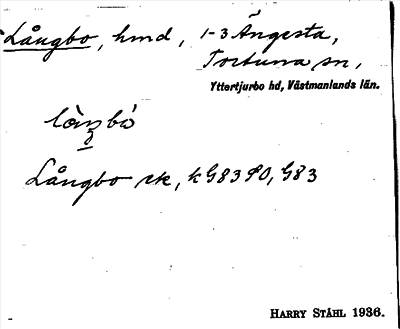 Långbo, hmd, 1-3 Ängesta,
Tortuna sn,
Yttertjurbo hd, Västmanlands län.
Långbo
HARRY STÅHL 1936.